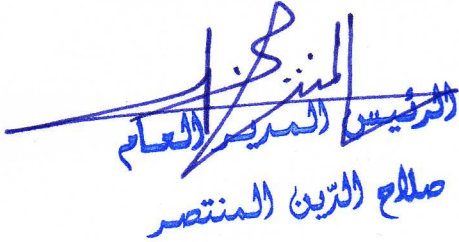 الرئيس المدير العام
صلاح الدّين المنتصر